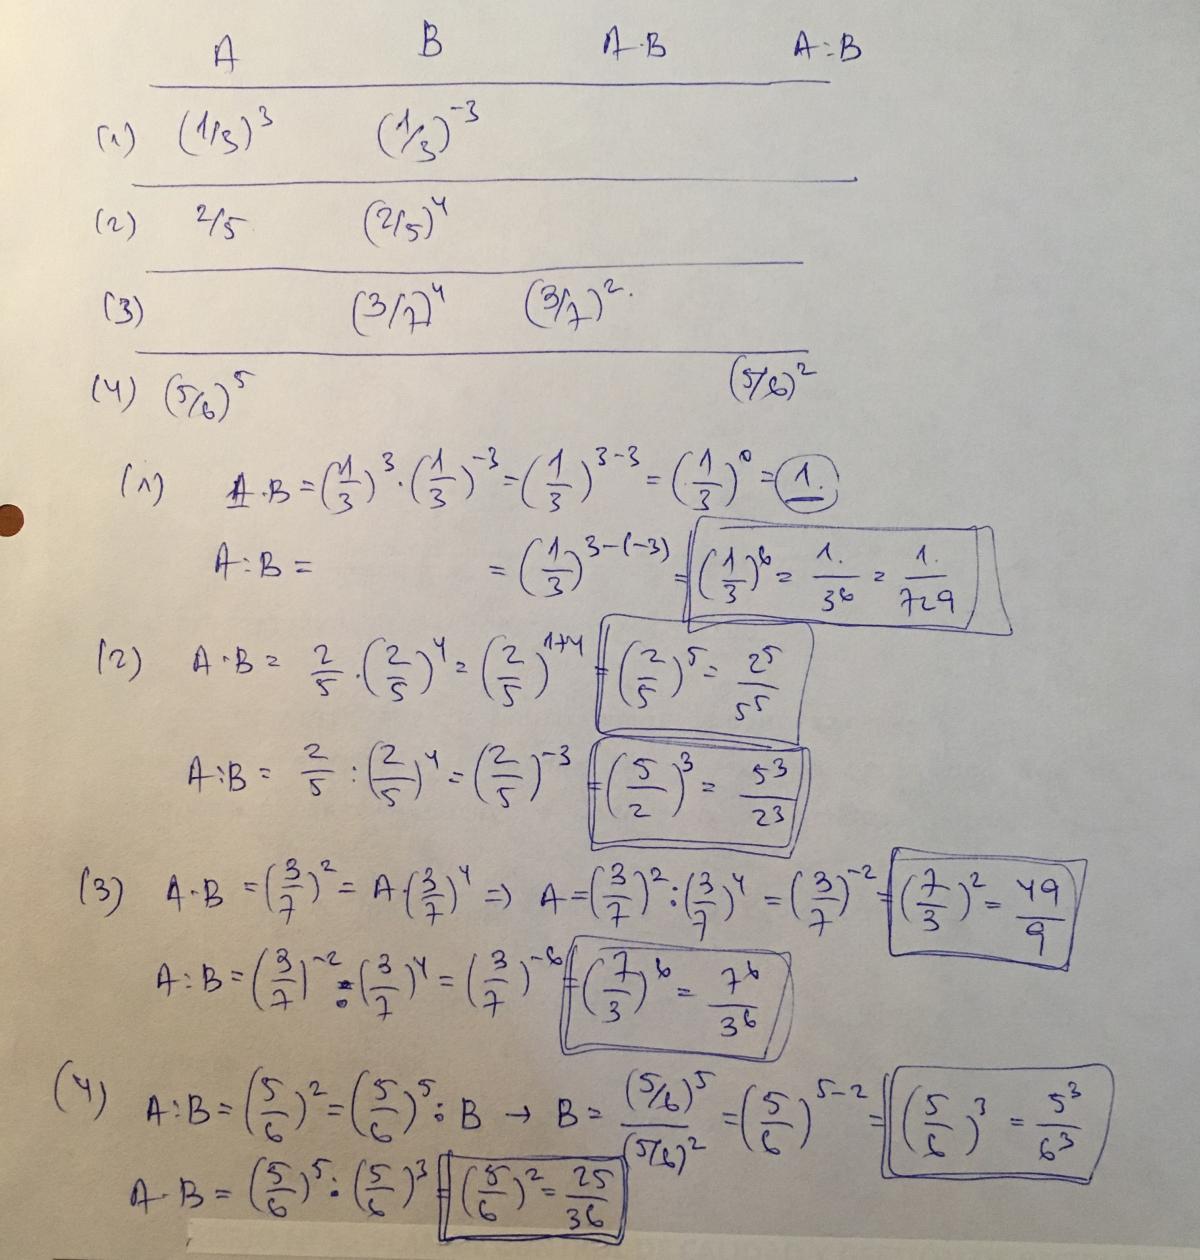 A B A·B A:B
(1) (1/3)³ (1/3)⁻³
(2) 2/5 (2/5)⁴
(3) (3/7)⁴ (3/7)².
(4) (5/6)⁵ (5/6)²
(1) A·B = (1/3)³·(1/3)⁻³ = (1/3)³⁻³ = (1/3)⁰ = 1.
A:B = = (1/3)³⁻⁽⁻³⁾ = (1/3)⁶ = 1./3⁶ = 1./729
(2) A·B = 2/5·(2/5)⁴ = (2/5)¹⁺⁴ = (2/5)⁵ = 2⁵/5⁵
A:B = 2/5 : (2/5)⁴ = (2/5)⁻³ = (5/2)³ = 5³/2³
(3) A·B = (3/7)² = A·(3/7)⁴ => A = (3/7)² : (3/7)⁴ = (3/7)⁻² = (7/3)² = 49/9
A:B = (3/7)⁻² : (3/7)⁴ = (3/7)⁻⁶ = (7/3)⁶ = 7⁶/3⁶
(4) A:B = (5/6)² = (5/6)⁵ : B → B = (5/6)⁵/(5/6)² = (5/6)⁵⁻² = (5/6)³ = 5³/6³
A·B = (5/6)⁵ : (5/6)³ = (5/6)² = 25/36